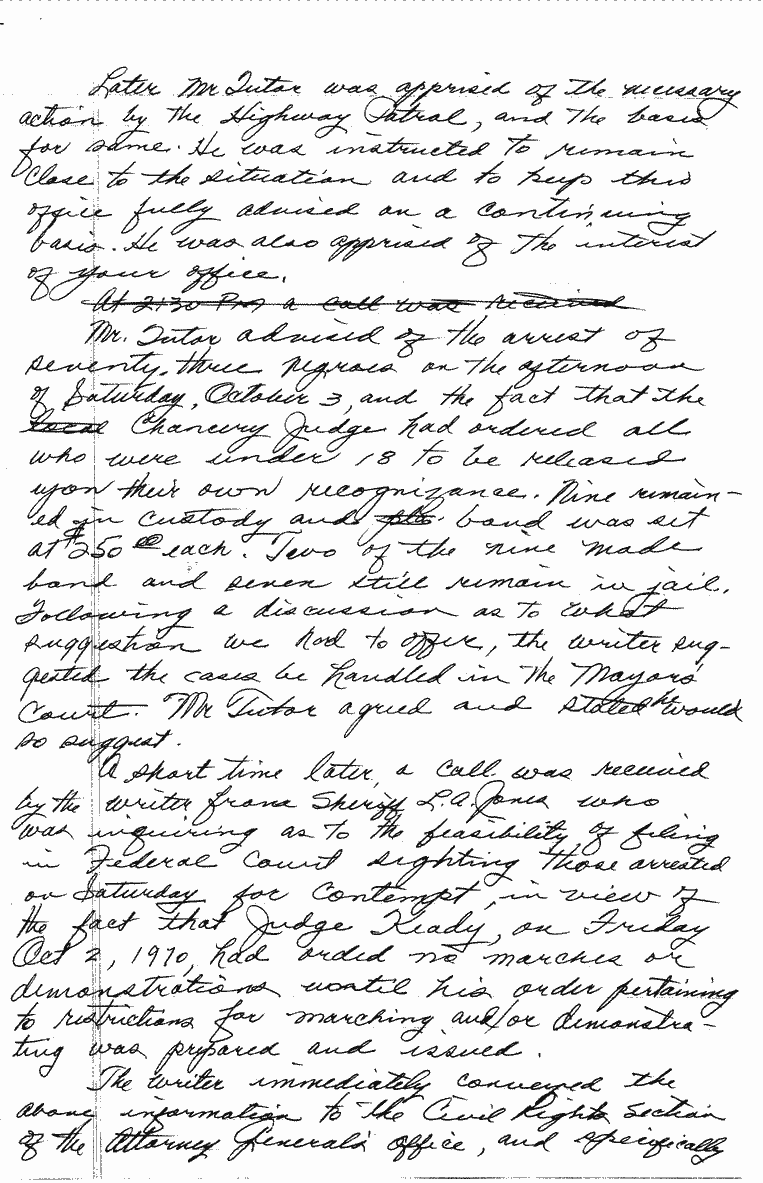 Later Mr Tutor was apprised of the necessary
action by the Highway Patrol, and the basis
for same. He was instructed to remain
close to the situation and to keep this
office fully advised on a continuing
basis. He was also apprised of the interest
of your office.
At 2:30 Pm a call was received
Mr. Tutor advised of the arrest of
seventy-three negroes on the afternoon
of Saturday, October 3, and the fact that the
local Chancery Judge had ordered all
who were under 18 to be released
upon their own recognizance. Nine remain-
ed in custody and bond was set
at $250 00 each. Two of the nine made
bond and seven still remain in jail.
Following a discussion as to what
suggestion we had to offer, the writer sug-
gested the cases be handled in the Mayors'
Court. Mr Tutor agreed and stated he would
so suggest.
A short time later, a call was received
by the writer from Sheriff L.A. Jones who
was inquiring as to the feasibility of filing
in Federal Court sighting those arrested
on Saturday for contempt, in view of
the fact that Judge Keady, on Friday
Oct 2, 1970, had orded no marches or
demonstrations until his order pertaining
to restrictions for marching and/or demonstra-
ting was prepared and issued.
The writer immediately conveyed the
above information to the Civil Rights Section
of the Attorney General's office, and specifically